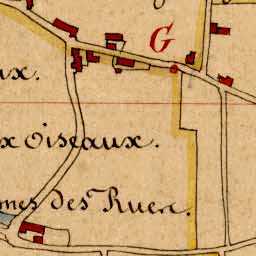 G
ux.
x oiseaux.
mes des Ruer.